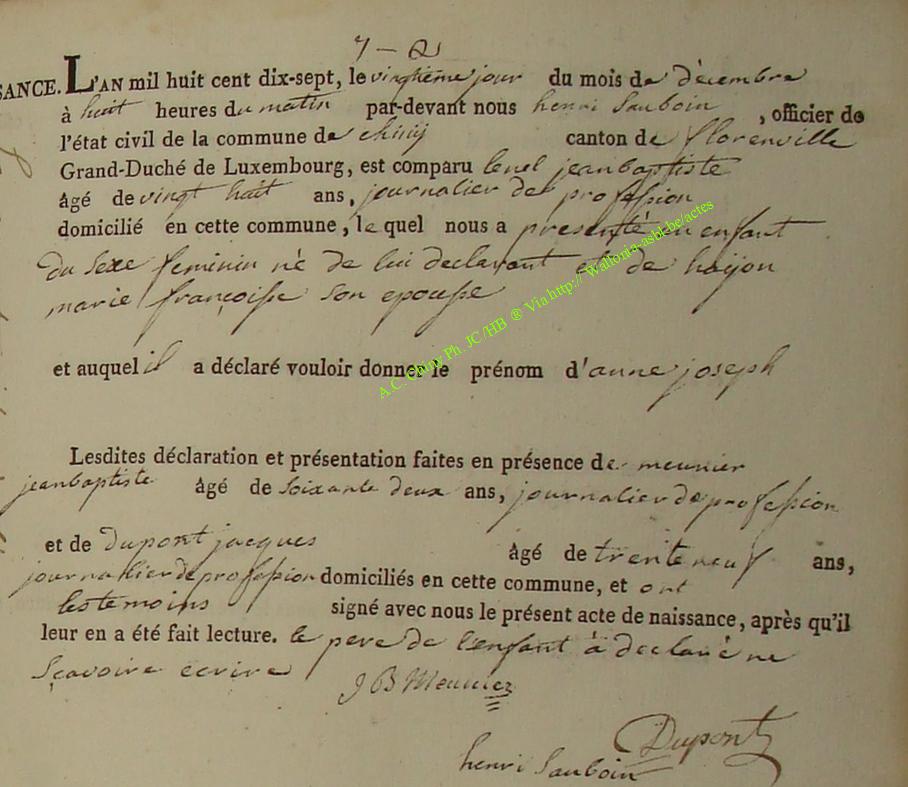 SANCE. L'AN mil huit cent dix-sept, le vingtieme jour du mois de décembre
à huit heures du matin par-devant nous henri Sauboin, officier de
l'état civil de la commune de chiny canton de florenville
Grand-Duché de Luxembourg, est comparu jeanbaptiste
âgé de vingt huit ans, journalier de profession
domicilié en cette commune, le quel nous a presenté un enfant
du sexe feminin né de lui declarant et de hajon
marie françoisse son epousse
et auquel il a déclaré vouloir donner le prénom d'anne joseph
Lesdites déclaration et présentation faites en présence de meunier
jeanbaptiste âgé de soixante deux ans, journalier de profession
et de dupont jacques âgé de trente neuf ans,
journalier de profession domiciliés en cette commune, et ont
les temoins signé avec nous le présent acte de naissance, après qu'il
leur en a été fait lecture. le pere de l'enfant à declaré ne
sçavoire écrire
J B Meunier
Dupont
henri Sauboin
A.C. Chiny Ph. JC/HB ® Via http:// Wallonia-asbl-be/actes